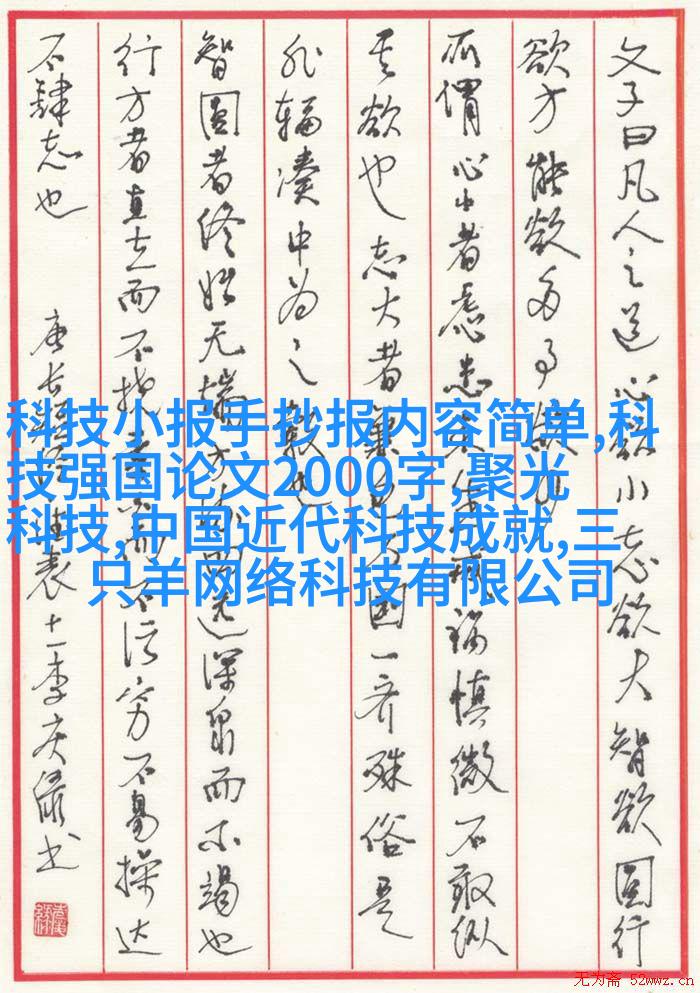 文子曰凡人之道心欲小志欲大智欲圆行
欲方能欲多事欲
所谓心小者虑患未生戒祸慎微不敢纵
其欲也志大者兼包万国一齐殊俗是
非辐凑中为之毂也
智圆者终始无端方流四远深泉而不竭也
行方者直立而不挠素白而不污穷不易操达
不肆志也
唐长孙 十一季庆渌书
科技小报手抄报内容简单,科
技强国论文2000字,聚光
科技,中国近代科技成就,三
只羊网络科技有限公司
无为斋 52wwz.cn